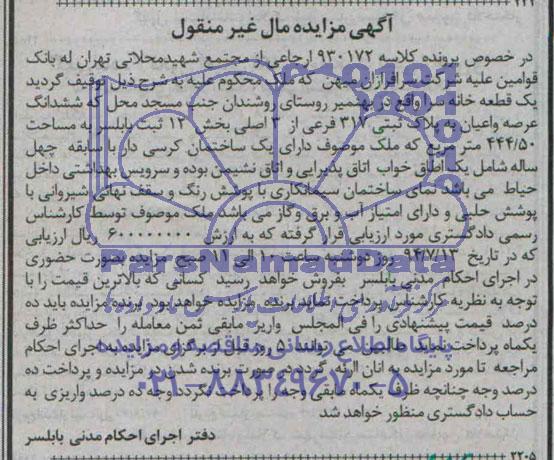 آگهی مزایده مال غیر منقول
در خصوص پرونده کلاسه ۹۳۰۱۷۲ ارجاعی از مجتمع شهیدمحلاتی تهران له بانک
قوامین علیه شرکت سرافرازان میهن که ملک محکوم علیه به شرح ذیل توقیف گردید
یک قطعه خانه سرا واقع در بهنمیر روستای روشندان جنب مسجد محل که ششدانگ
عرصه واعیان به پلاک ثبتی ۳۱۷ فرعی از ۳ اصلی بخش ۱۲ ثبت بابلسر به مساحت
۴۴۴/۵۰ متر مربع که ملک موصوف دارای یک ساختمان کرسی دار با سابقه چهل
ساله شامل یک اطاق خواب اتاق پذیرایی و اتاق نشیمن بوده و سرویس بهداشتی داخل
حیاط می باشد نمای ساختمان سیمانکاری با پوشش رنگ و سقف نهائی شیروانی با
پوشش حلبی و دارای امتیاز آب و برق وگاز می باشد ملک موصوف توسط کارشناس
رسمی دادگستری مورد ارزیابی قرار گرفته که به ارزش ۶۰۰۰۰۰۰۰۰ ریال ارزیابی
که در تاریخ ۹۴/۷/۱۳ روز دوشنبه ساعت ۱۰ الی ۱۱ صبح مزایده بصورت حضوری
در اجرای احکام مدنی بابلسر بفروش خواهد رسید کسانی که بالاترین قیمت را با
توجه به نظریه کارشناس پرداخت نماید برنده مزایده خواهد بود برنده مزایده باید ده
درصد قیمت پیشنهادی را فی المجلس واریز مابقی ثمن معامله را حداکثر ظرف
یکماه پرداخت نماید طالبین می توانند ۵ روز قبل از برگزاری مزایده به اجرای احکام
مراجعه تا مورد مزایده به آنان ارائه گردد در صورت برنده شدن در مزایده و پرداخت ده
درصد وجه چنانچه ظرف یکماه مابقی وجه را پرداخت نگردد وجه ده درصد واریزی به
حساب دادگستری منظور خواهد شد
دفتر اجرای احکام مدنی بابلسر
۲۲۰۵
ParsNamadData
پایگاه اطلاع رسانی مناقصه و مزایده
۰۲۱-۸۸۳۴۹۶۷۰-۵